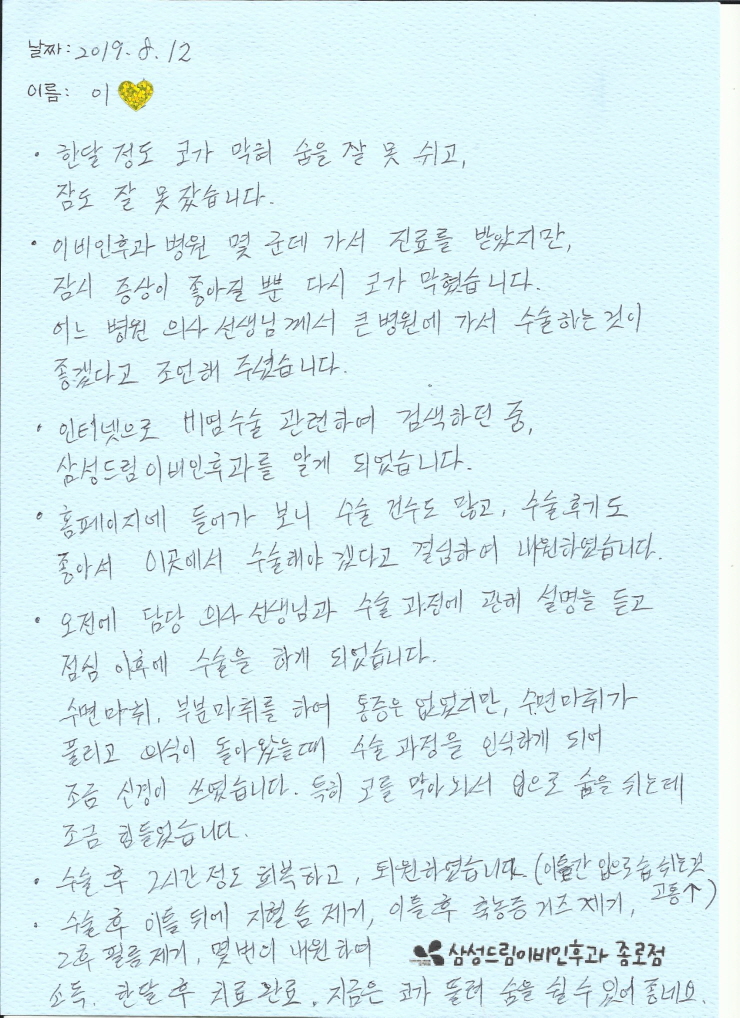 날짜: 2019. 8. 12
이름: 이
· 한달 정도 코가 막혀 숨을 잘 못 쉬고,
잠도 잘 못 잤습니다.
· 이비인후과 병원 몇 군데 가서 진료를 받았지만,
잠시 증상이 좋아질 뿐 다시 코가 막혔습니다.
어느 병원 의사 선생님께서 큰 병원에 가서 수술하는 것이
좋겠다고 조언해 주셨습니다.
· 인터넷으로 비염수술 관련하여 검색하던 중,
삼성드림이비인후과를 알게 되었습니다.
· 홈페이지에 들어가 보니 수술 건수도 많고, 수술후기도
좋아서 이곳에서 수술해야 겠다고 결심하여 내원하였습니다.
· 오전에 담당 의사 선생님과 수술 과정에 관해 설명을 듣고
점심 이후에 수술을 하게 되었습니다.
수면마취, 부분마취를 하여 통증은 없었지만, 수면마취가
풀리고 의식이 돌아왔을때 수술 과정을 인식하게 되어
조금 신경이 쓰였습니다. 특히 코를 막아놔서 입으로 숨을 쉬는데
조금 힘들었습니다.
· 수술 후 2시간 정도 회복하고, 퇴원하였습니다. (이틀간 입으로 숨 쉬는것
고통↑)
· 수술 후 이틀 뒤에 지혈솜 제거, 이틀 후 축농증 거즈 제거,
그후 필름 제거, 몇번의 내원하여
삼성드림이비인후과 종로점
소독. 한달 후 치료 완료. 지금은 코가 뚫려 숨을 쉴 수 있어 좋네요.